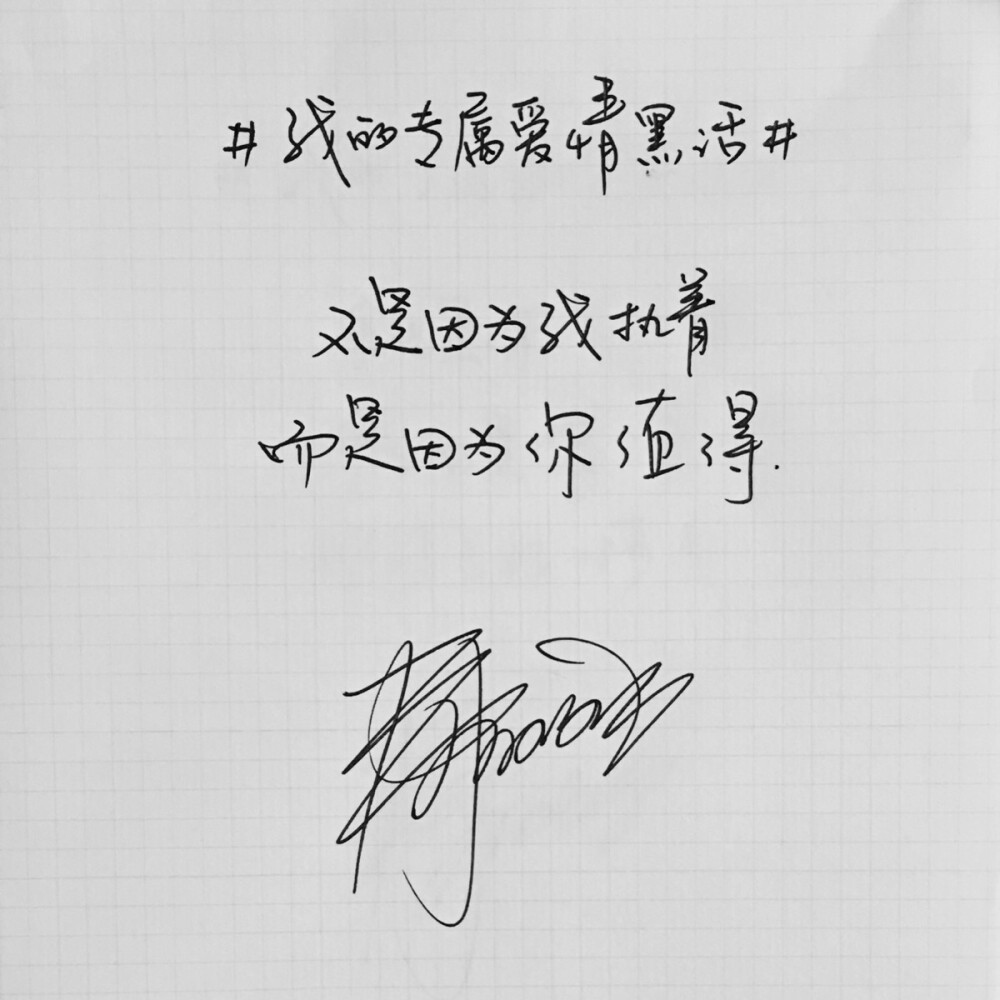 #我的专属爱情黑话#
不是因为我执着
而是因为你值得.